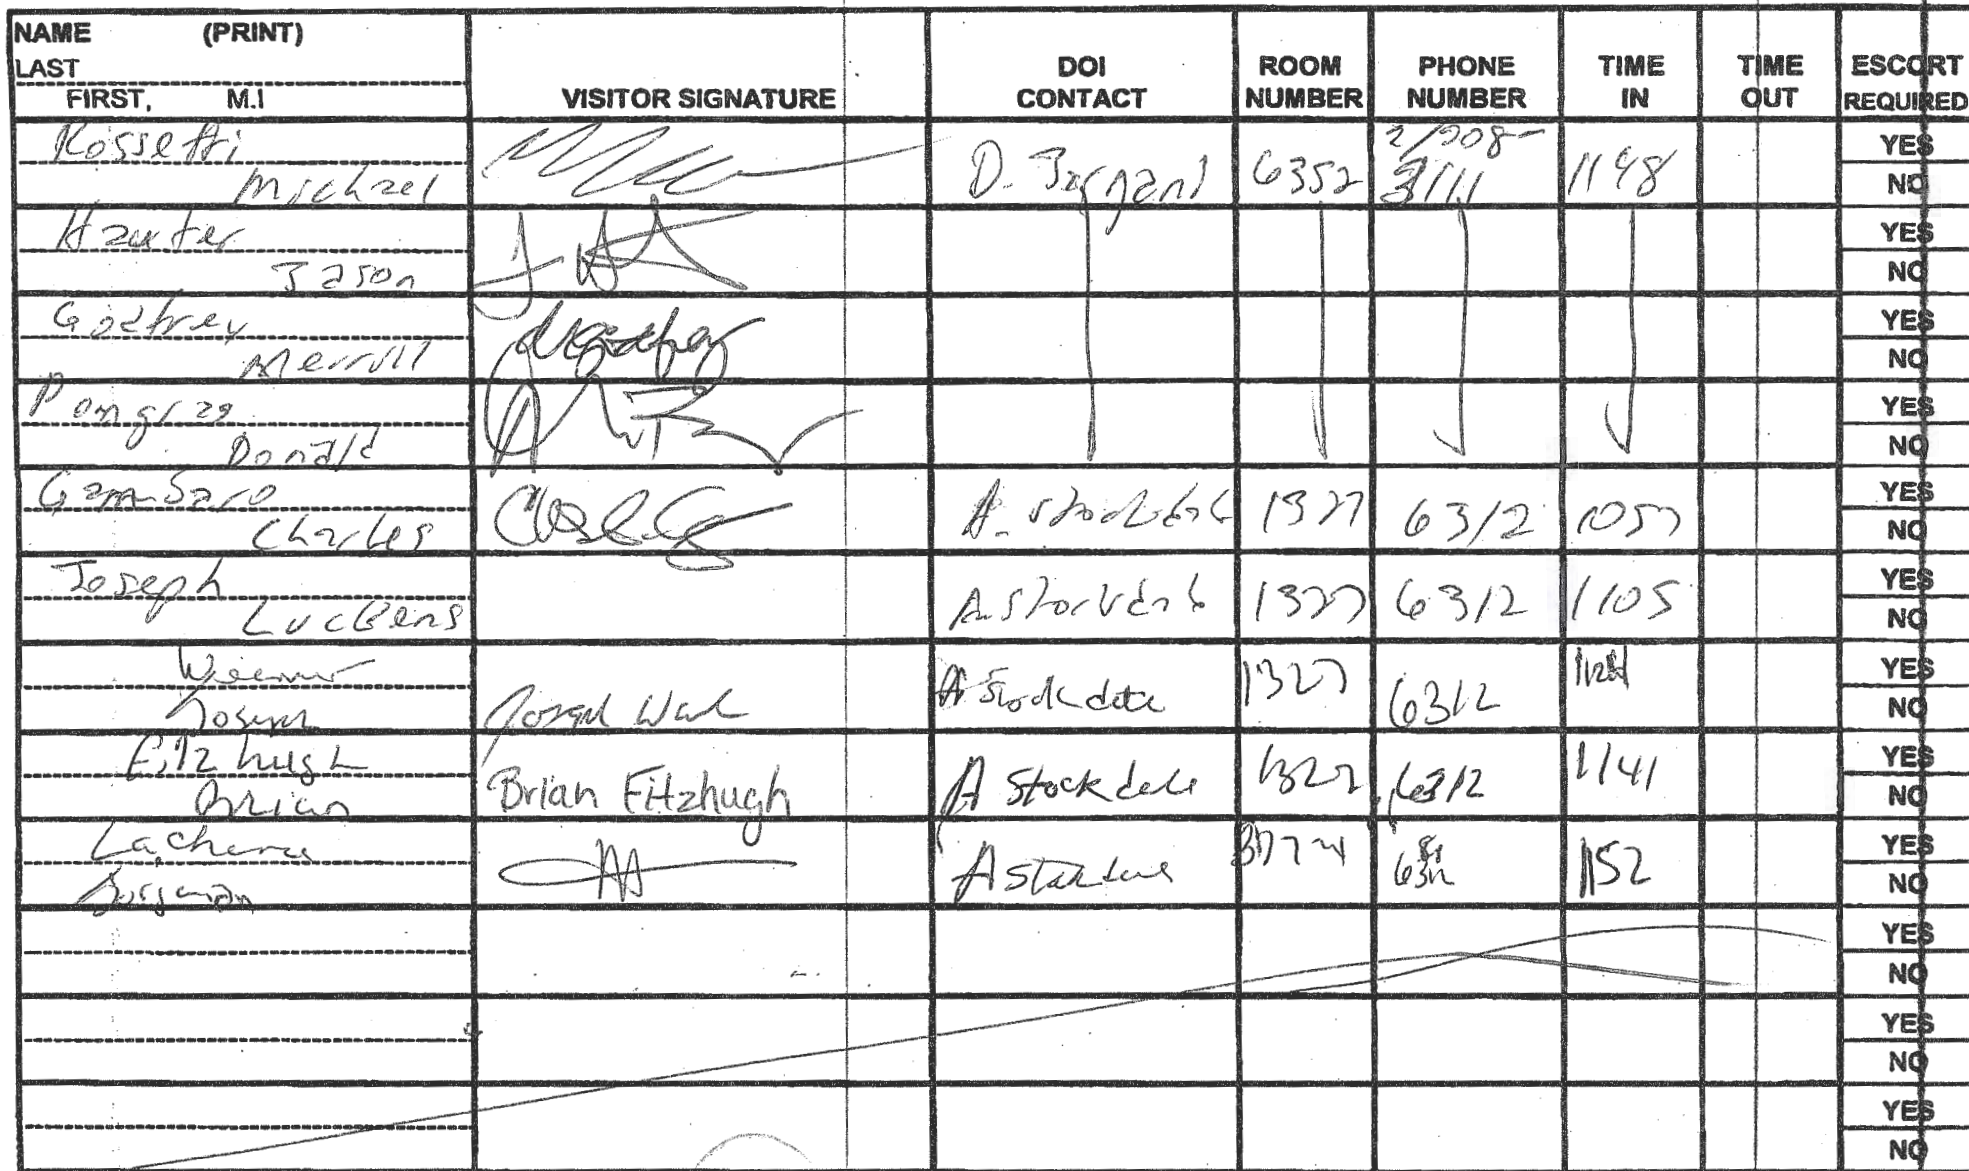 NAME (PRINT)
LAST
FIRST, M.I
VISITOR SIGNATURE
DOI CONTACT
ROOM NUMBER
PHONE NUMBER
TIME IN
TIME OUT
ESCORT REQUIRED
Rossetti
Michael
D. 6352 2/208-3111 1148
YES
NO
Hauter
Jason
YES
NO
Godfrey
Merrill
YES
NO
Pongrac
Donald
YES
NO
Gambaro
Charles
A. Stockdale 1327 6312 1057
YES
NO
Joseph
Luc
A. Stockdale 1327 6312 1105
YES
NO
Joseph
A Stockdale 1327 6312
YES
NO
Fitzhugh
Brian
Brian Fitzhugh
A Stockdale 1327 6312 1141
YES
NO
A 1152
YES
NO
YES
NO
YES
NO
YES
NO